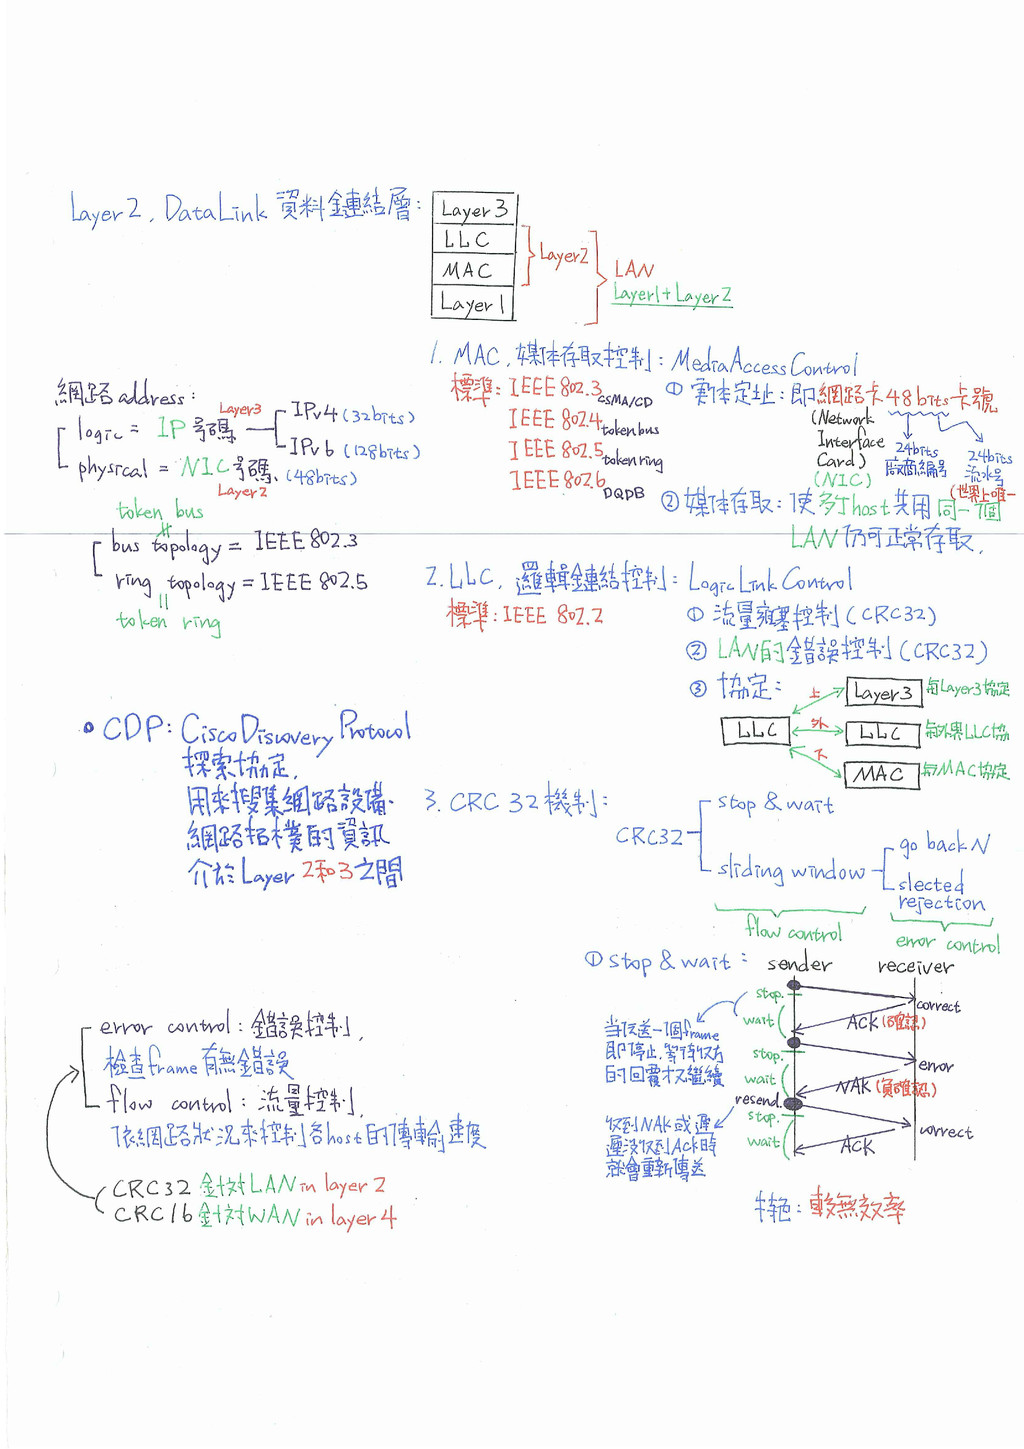 Layer2, DataLink 資料鏈結層:
Layer3
LLC
MAC
Layer1
Layer2
LAN
Layer1+Layer2
1. MAC, 媒体存取控制: Media Access Control
標準: IEEE 802.3 CSMA/CD
IEEE 802.4 token bus
IEEE 802.5 token ring
IEEE 802.6 DQDB
① 實体定址: 即網路卡48bits卡號
(Network Interface Card)
(NIC)
24bits
廠商編号
24bits
流水号
(世界上唯一)
② 媒体存取: 使多個host共用同一個
LAN仍可正常存取.
網路address:
logic = IP号碼
Layer3
IPv4 (32bits)
IPv6 (128bits)
physical = NIC号碼 (48bits)
Layer2
token bus
bus topology = IEEE 802.3
ring topology = IEEE 802.5
token ring
2. LLC, 邏輯鏈結控制: Logic Link Control
標準: IEEE 802.2
① 流量壅塞控制 (CRC32)
② LAN的錯誤控制 (CRC32)
③ 協定:
LLC
上
Layer3
與Layer3協定
外
LLC
與外界LLC協
下
MAC
與MAC協定
• CDP: Cisco Discovery Protocol
探索協定,
用來搜集網路設備.
網路拓樸的資訊
介於Layer 2和3之間
3. CRC 32 機制:
CRC32
stop & wait
sliding window
go back N
slected
rejection
flow control
error control
① stop & wait:
sender
receiver
stop.
wait
correct
ACK (確認)
stop.
wait
error
NAK (負確認)
resend.
stop.
wait
correct
ACK
當傳送一個frame
即停止.等待收方
的回覆才又繼續
收到NAK或遲
遲沒收到Ack時
就會重新傳送
特色: 較無效率
error control: 錯誤控制,
檢查frame有無錯誤
flow control: 流量控制,
依網路狀況來控制各host的傳輸速度
CRC32 針対LAN in layer 2
CRC16 針対WAN in layer 4